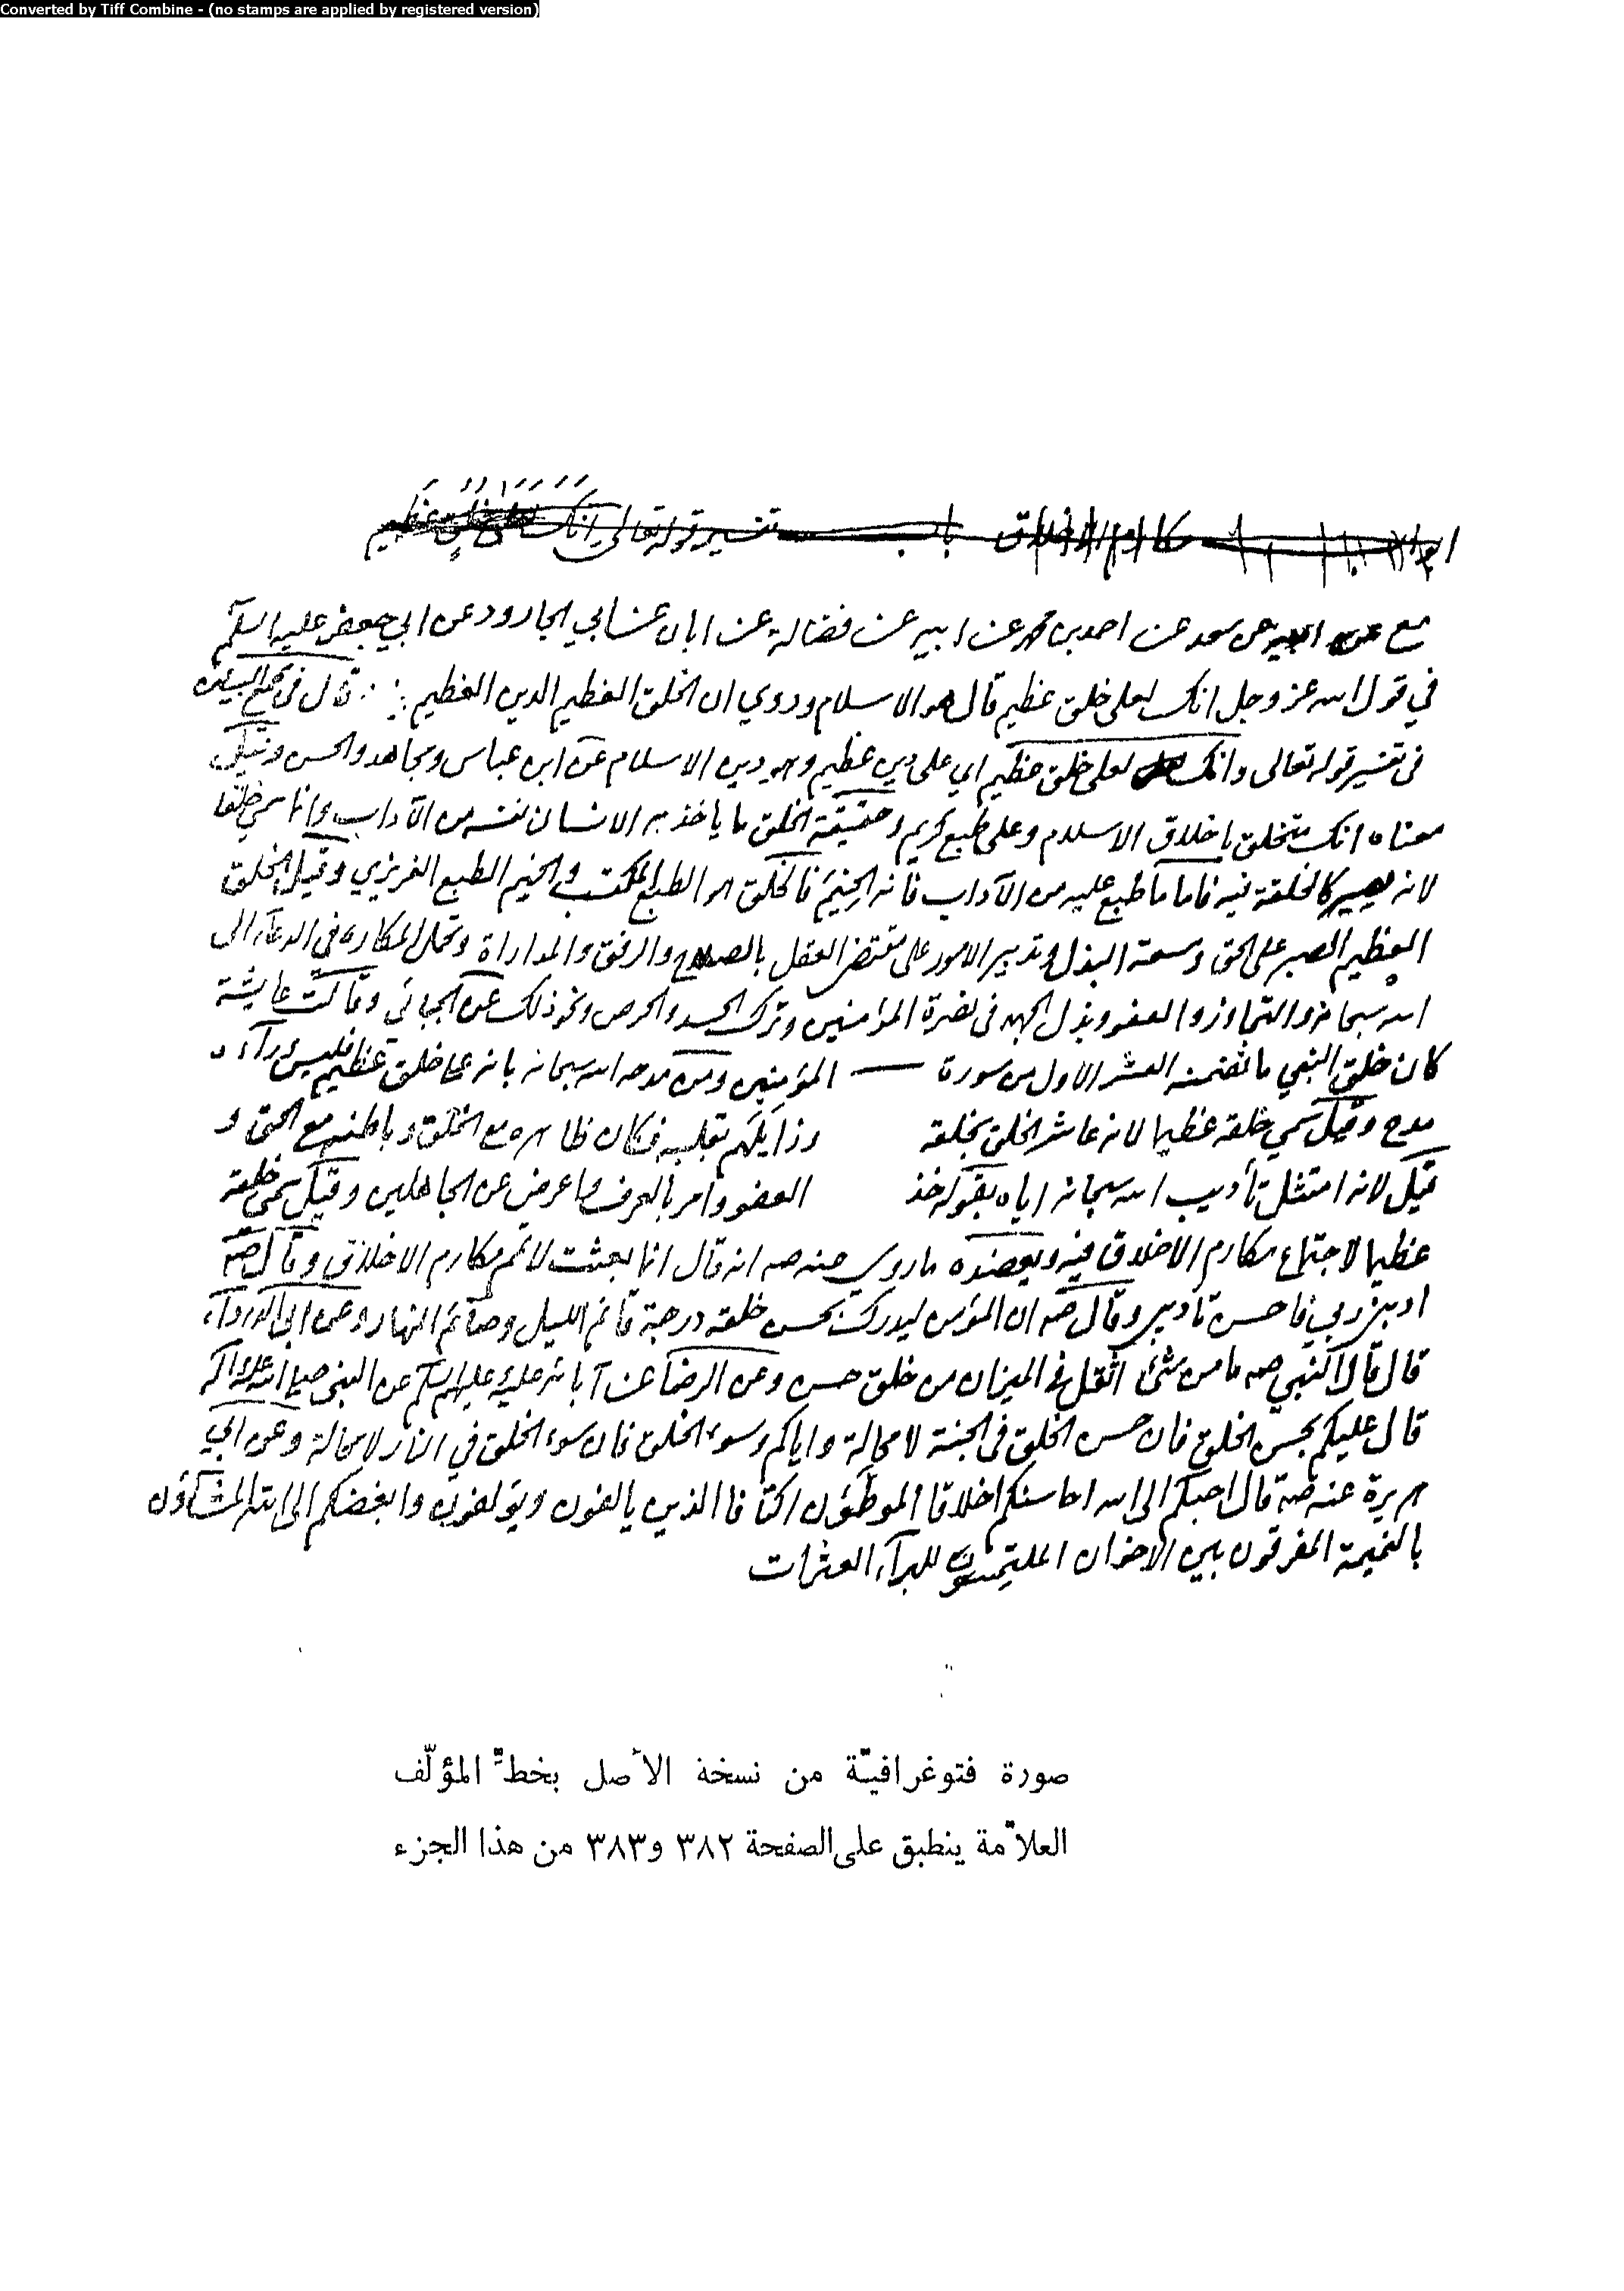 Converted by Tiff Combine - (no stamps are applied by registered version)
مكارم الاخلاق باب تفسير قوله تعالى انك لعلى خلق عظيم
مع عن سعد عن احمد بن محمد عن ابيه عن فضالة عن ابان عن ابي الجارود عن ابي جعفر عليه السلم
في قول الله عز وجل انك لعلى خلق عظيم قال هو الاسلام وروي ان الخلق العظيم الدين العظيم قال في مجمع البيان
في تفسير قوله تعالى وانك لعلى خلق عظيم اي على دين عظيم وهو دين الاسلام عن ابن عباس ومجاهد والحسن وقيل
معناه انك متخلق باخلاق الاسلام وعلى طبع كريم وحقيقة الخلق ما ياخذ به الانسان نفسه من الآداب وانما سمي خلقا
لانه يصير كالخلقة فيه فاما ما طبع عليه من الآداب فانه الخِيم فالخلق هو الطبع المكتسب والخيم الطبع الغريزي وقيل الخلق
العظيم الصبر على الحق وسعة البذل وتدبير الامور على مقتضى العقل بالصلاح والرفق والمداراة وتحمل المكاره في الدعآء الى
الله سبحانه والتجاوز والعفو وبذل الجهد في نصرة المؤمنين وترك الحسد والحرص ونحو ذلك عن الجبائي وقالت عايشة
كان خلق النبي ما تضمنه العشر الاول من سورة المؤمنين ومن مدحه الله سبحانه بانه على خلق عظيم فليس ورآءه
مدح وقيل سمي خلقه عظيما لانه عاشر الخلق بخلقه وزايلهم بقلبه فكان ظاهره مع الخلق وباطنه مع الحق و
قيل لانه امتثل تأديب الله سبحانه اياه بقوله خذ العفو وامر بالعرف واعرض عن الجاهلين وقيل سمي خلقه
عظيما لاجتماع مكارم الاخلاق فيه ويعضده ما روي عنه صه انه قال انما بعثت لاتمم مكارم الاخلاق وقال صه
ادبني ربي فاحسن تاديبي وقال صه ان المؤمن ليدرك بحسن خلقه درجة قائم الليل وصائم النهار وعن ابي الدردآء
قال قال النبي صه ما من شئ اثقل في الميزان من خلق حسن وعن الرضا عن آبائه عليه عليهم السلم عن النبي صلى الله عليه وآله
قال عليكم بحسن الخلق فان حسن الخلق في الجنة لا محالة واياكم وسوء الخلق فان سوء الخلق في النار لا محالة وعن ابي
هريرة عنه صه قال احبكم الى الله احاسنكم اخلاقا الموطؤن اكنافا الذين يالفون ويؤلفون وابغضكم الى الله المشاؤن
بالنميمة المفرقون بين الاخوان الملتمسون للبرآء العثرات
صورة فتوغرافيّة من نسخة الأصل بخطّ المؤلّف
العلاّمة ينطبق على الصفحة ٣٨٢ و٣٨٣ من هذا الجزء